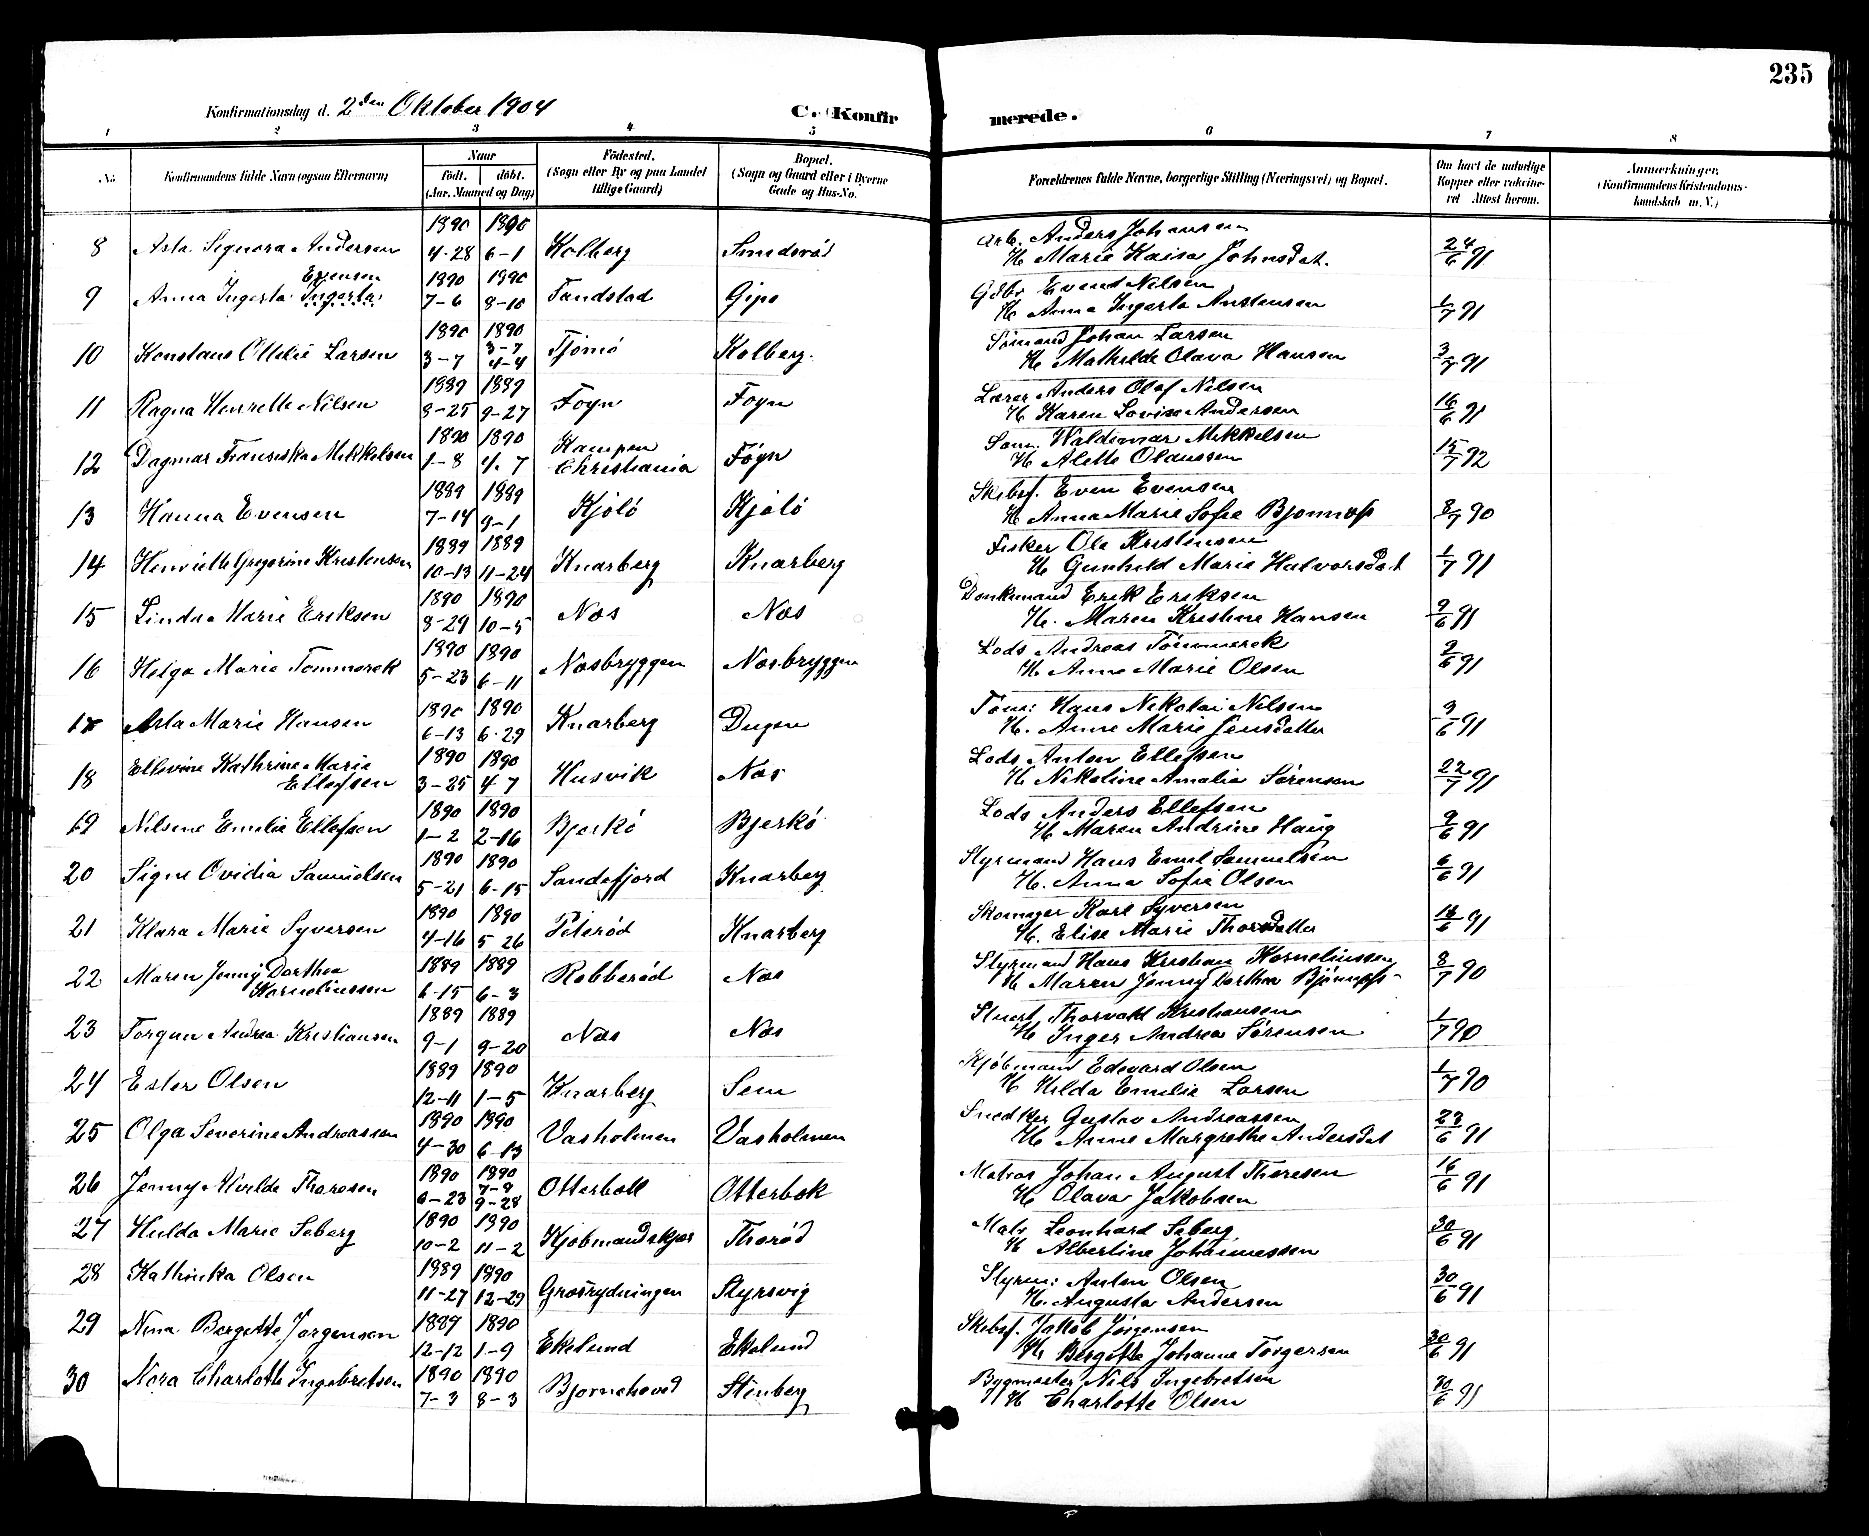 235
Konfirmationsdag d. 2den Oktober 1904 C. Konfirmerede.
1 2 3 4 5 6 7 8
No. Konfirmandens fulde Navn (ogsaa Efternavn) Naar født. døbt. (Aar, Maaned og Dag) Fødested. (Sogn eller By og paa Landet tillige Gaard) Bopæl. (Sogn og Gaard eller i Byerne Gade og Hus-No. Forældrenes fulde Navne, borgerlige Stilling (Næringsvei) og Bopæl. Om havt de naturlige Kopper eller vakcineret Attest herom. Anmærkninger. (Konfirmandens Kristendomskundskab m. V.)
8 Asta Signora Andersen 1890 4-28 1890 6-1 Kolberg Smidsrød Arb. Anders Johansen
H. Marie Kaisa Johnsdat. 24/6 91
9 Anna Ingerta Ingerta Evensen 1890 7-6 1890 8-10 Tandstad Gipø Gdbr Evend Nilsen
H. Anna Ingerta Anstensen 1/7 91
10 Konstanse Ottilie Larsen 1890 3-7 1890 3-7 4-4 Tjømø Kolberg. Sømand Johan Larsen
H. Mathilde Olava Hansen 3/7 91
11 Ragna Henrette Nilsen 1889 8-25 1889 9-27 Foyn Foyn Lærer Anders Olaf Nilsen
H. Karen Lovise Andersen 16/6 91
12 Dagmar Fransiska Mikkelsen 1890 1-8 1890 4-7 Kampen Christiania Føyn Søm. Waldimar Mikkelsen
H. Alette Olaussen 15/7 92
13 Hanna Evensen 1889 7-14 1889 9-1 Kjøló Kjøló Skibsf. Even Evensen
H. Anna Marie Sofie Bjønness 8/7 90
14 Henriette Gregorine Kristensen 1889 10-13 1889 11-24 Knarberg Knarberg Fisker Ole Kristensen
H. Gunhild Marie Halvorsdat 1/7 91
15 Linda Marie Eriksen 1890 8-29 1890 10-5 Næs Næs Donkemand Erik Eriksen
H. Maren Kristine Hansen 9/6 91
16 Helga Marie Tømmerek 1890 5-23 1890 6-11 Næsbryggen Næsbryggen Lods Andreas Tømmerek
H. Anne Marie Olsen 9/6 91
17 Asta Marie Hansen 1890 6-13 1890 6-29 Knarberg Dugen Tøm: Hans Nikolai Nilsen
H. Anne Marie Jensdatter 9/6 91
18 Ellevine Kathrine Marie Ellefsen 1890 3-25 1890 4-7 Husvik Næs Lods Anton Ellefsen
H. Nikoline Amalia Sørensen 22/7 91
19 Nilsine Emilie Ellefsen 1890 1-2 1890 2-16 Bjerkø Bjerkø Lods Anders Ellefsen
H. Maren Andrine Haug 9/6 91
20 Signe Ovidia Samuelsen 1890 5-21 1890 6-15 Sandefjord Knarberg Styrmand Hans Emil Samuelsen
H. Anna Sofie Olsen 6/6 91
21 Klara Marie Syversen 1890 4-16 1890 5-26 Piterød Knarberg Skomager Karl Syversen
H. Elise Marie Thorsdatter 91
22 Maren Jenny Dorthea Korneliussen 1889 6-15 1889 6-3 Robberød Næs Styrmand Hans Kristian Korneliussen
H Maren Jenny Dorthea Bjønness 8/7 90
23 Torgun Andrea Kristiansen 1889 9-1 1889 9-20 Næs Næs Stuert Thorvald Kristiansen
H. Inger Andrea Sørensen 1/7 90
24 Ester Olsen 1889 12-11 1890 1-5 Knarberg Sem Kjøbmand Edevard Olsen
H. Hilda Emilie Larsen 1/7 90
25 Olga Severine Andreassen 1890 4-30 1890 6-13 Vasholmen Vasholmen Snedker Gustav Andreassen
H. Anne Margrethe Andersdat 23/6 91
26 Jenny Alvilda Thoresen 1890 6-23 1890 7-9 9-28 Otterbæk Otterbæk Matros Johan August Thoresen
H. Olava Jakobsen 16/6 91
27 Hulda Marie Seberg 1890 10-2 1890 11-2 Kjøbmandskjær Thorød Matr Leonhard Seberg
H. Albertine Johannessen 30/6 91
28 Kathinka Olsen 1889 11-27 1890 12-29 Grøsrydningen Styrsvig Styrm: Anton Olsen
H. Augusta Andersen 30/6 91
29 Nina Bergette Jørgensen 1889 12-12 1890 1-9 Ekelund Ekelund Skibsf. Jakob Jørgensen
H. Bergitte Johanne Torgersen 30/6 91
30 Nora Charlotte Ingebretsen 1890 7-3 1890 8-3 Bjørnehoved Stenberg Bygmester Nils Ingebretsen
H. Charlotte Olsen 30/6 91